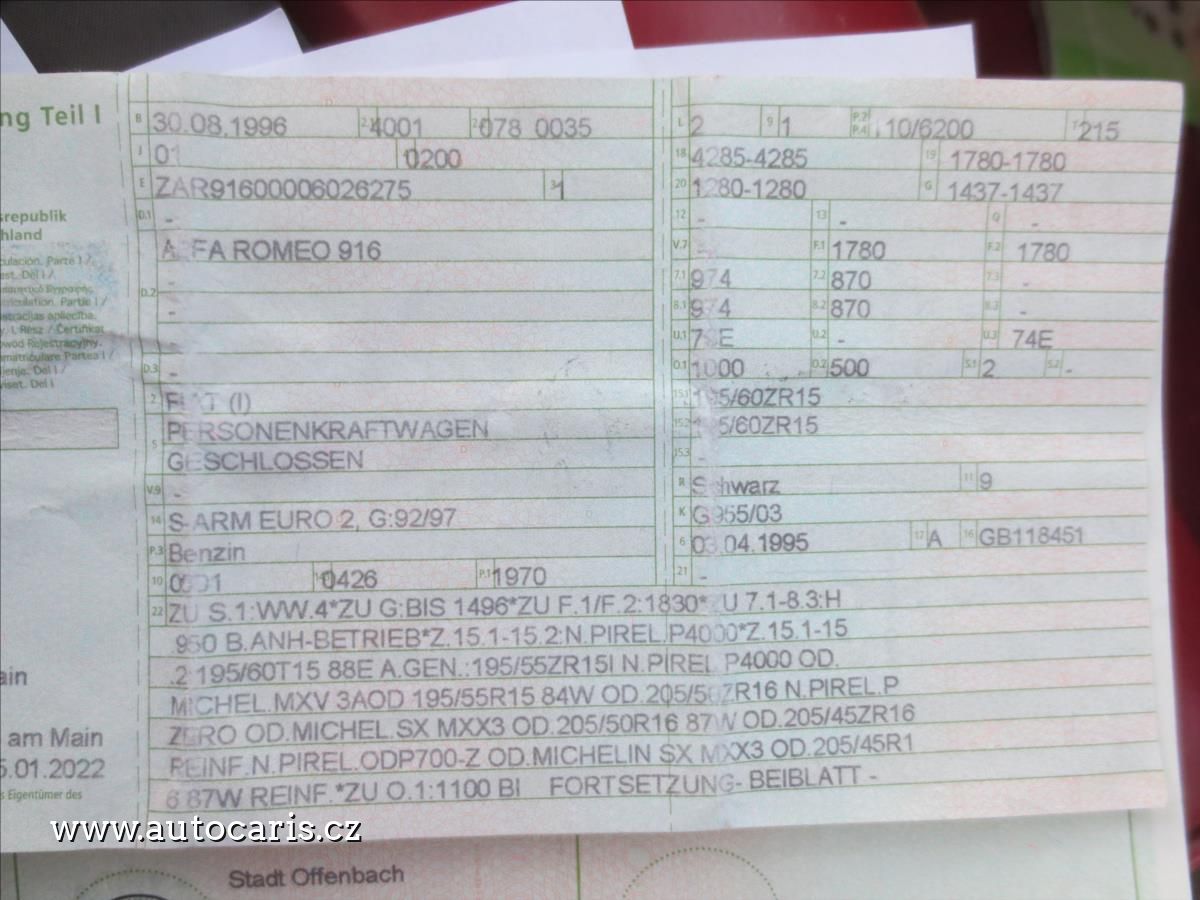 ng Teil I
srepublik
hland
B 30.08.1996 4001 078 0035
J 01 0200
E ZAR91600006026275 1
D.1 -
ALFA ROMEO 916
-
D.2
-
D.3 -
2 FIAT (I)
PERSONENKRAFTWAGEN
5
GESCHLOSSEN
V.9 -
14 S-ARM EURO 2, G:92/97
P.3 Benzin
10 0001 0426 P.1 1970
L 2 9 1 P.2 P.4 110/6200 T 215
18 4285-4285 19 1780-1780
20 1280-1280 G 1437-1437
12 - 13 - Q -
V.7 - F.1 1780 F.2 1780
7.1 974 7.2 870 7.3 -
8.1 974 8.2 870 8.3 -
U.1 78E U.2 - U.3 74E
O.1 1000 O.2 500 S.1 2 S.2 -
15.1 195/60ZR15
15.2 195/60ZR15
15.3 -
R Schwarz 11 9
K G955/03
6 03.04.1995 17 A 16 GB118451
21 -
22 ZU S.1:WW.4*ZU G:BIS 1496*ZU F.1/F.2:1830*ZU 7.1-8.3:H
.950 B.ANH-BETRIEB*Z.15.1-15.2:N.PIREL.P4000*Z.15.1-15
.2:195/60T15 88E A.GEN.:195/55ZR15I N.PIREL P4000 OD.
MICHEL.MXV 3AOD 195/55R15 84W OD.205/50ZR16 N.PIREL.P
ZERO OD.MICHEL.SX MXX3 OD.205/50R16 87W OD.205/45ZR16
REINF.N.PIREL.ODP700-Z OD.MICHELIN SX MXX3 OD.205/45R1
6 87W REINF.*ZU O.1:1100 BI FORTSETZUNG- BEIBLATT -
ain
am Main
5.01.2022
s Eigentümer des
www.autocaris.cz
Stadt Offenbach